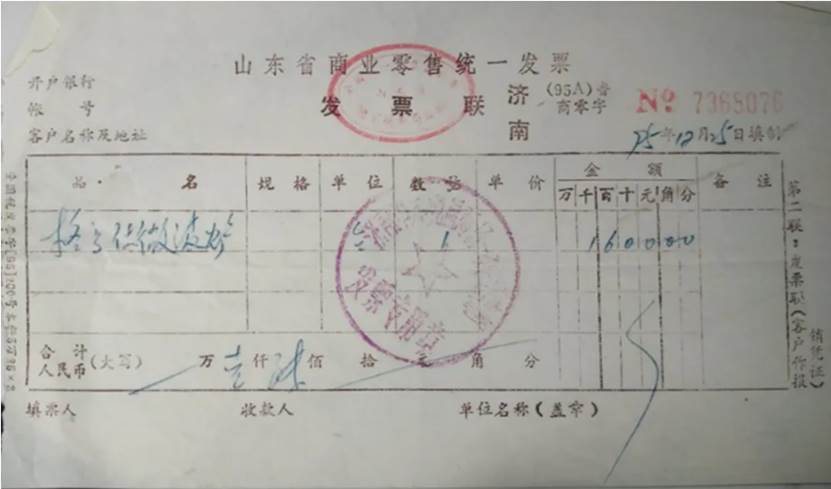 山东省商业零售统一发票
开户银行
帐 号
发 票 联
济南
(95A)鲁
商零字
No 7365076
客户名称及地址
95年12月25日填制
品 名 规 格 单 位 数 量 单 价 金 额 备 注
万 千 百 十 元 角 分
格兰仕微波炉 台 1 1 6 0 0 0 0
合 计
人民币(大写) 万 壹 仟 陆 佰 拾 元 角 分
填票人 收款人 单位名称(盖章)
第二联:发票联(客户作报销凭证)
发票专用章